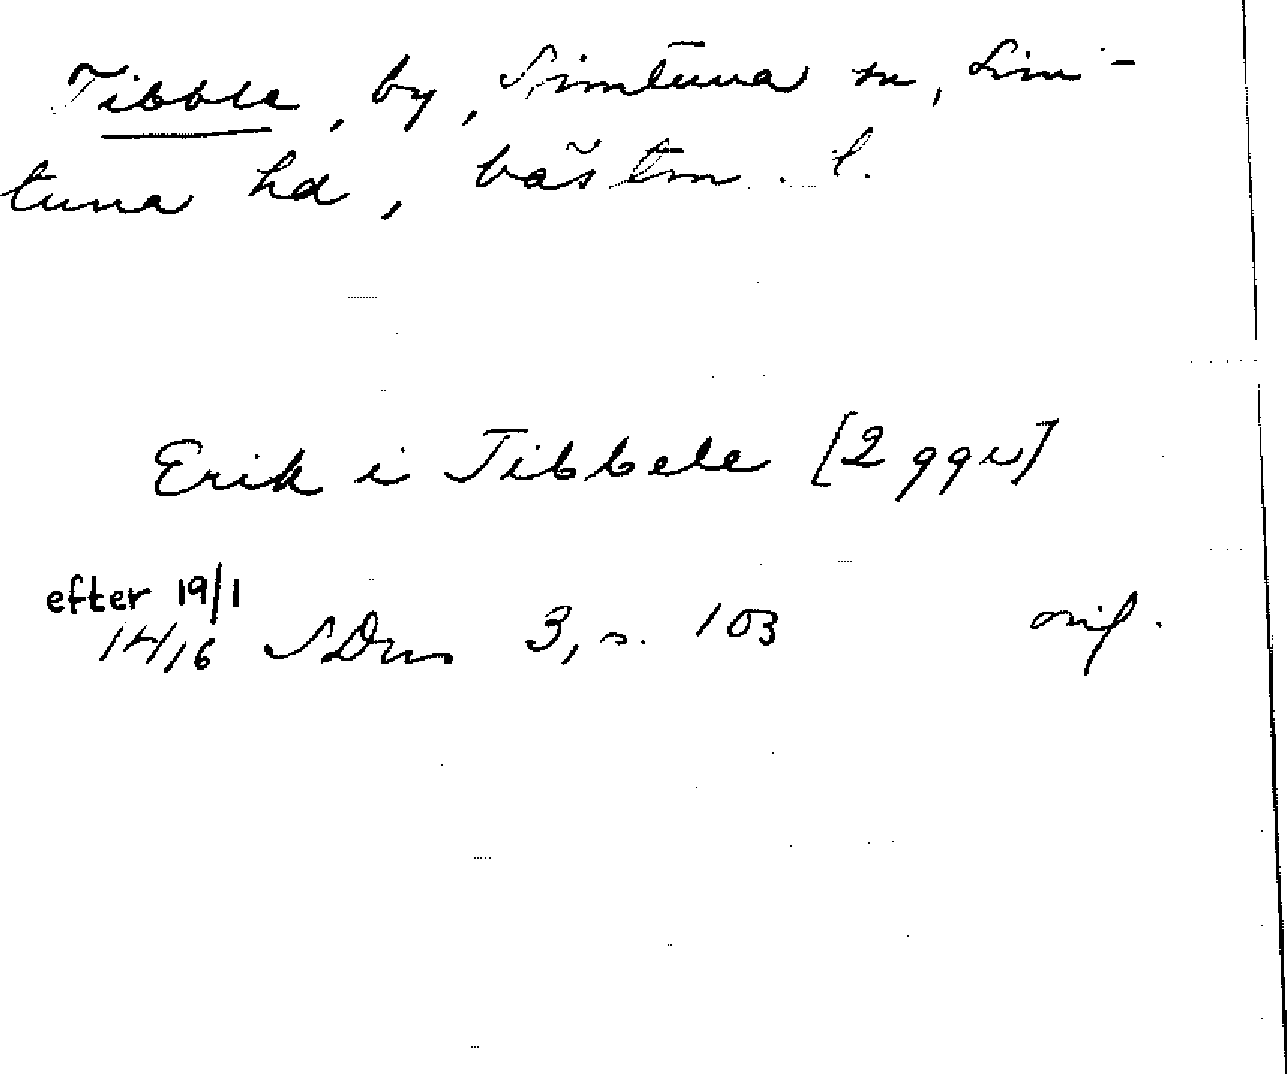 Tibble, by, Simtuna sn, Sim-
tuna hd, Västm. l.
Erik i Tibbele [2 ggr]
efter 19/1
1416 SDns 3, s. 103 orig.